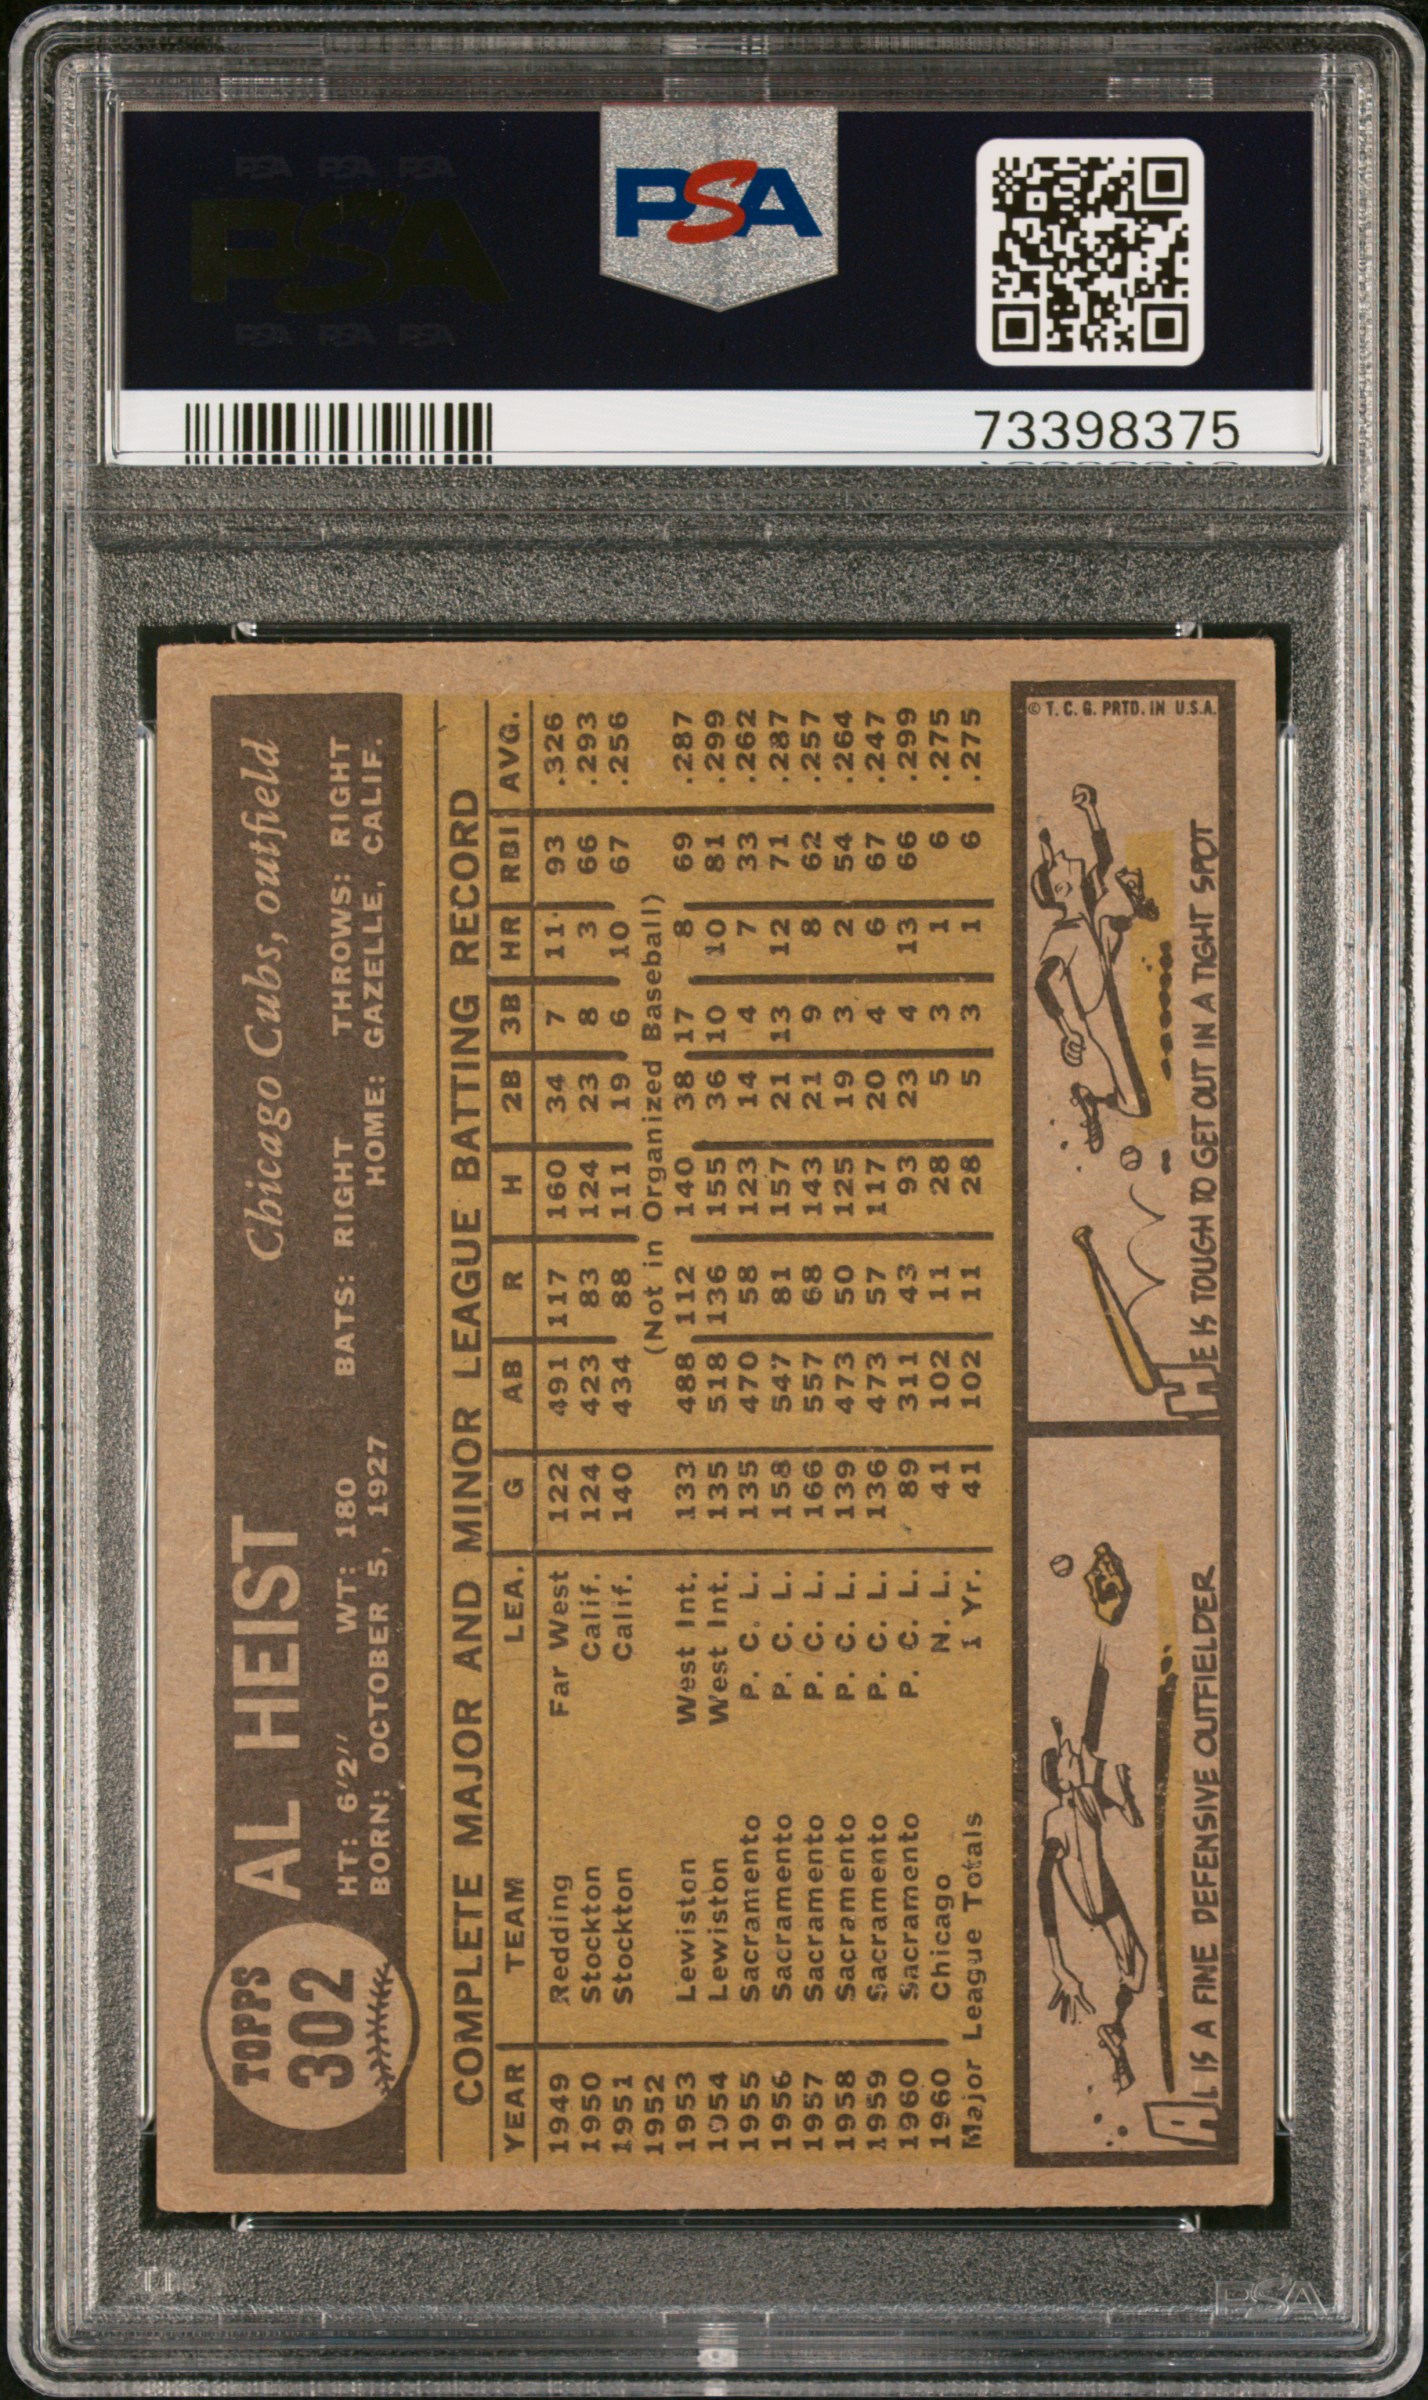 PSA PSA PSA
PSA
PSA PSA PSA
PSA
73398375
TOPPS
302
AL HEIST
Chicago Cubs, outfield
HT: 6'2" WT: 180 BATS: RIGHT THROWS: RIGHT
BORN: OCTOBER 5, 1927 HOME: GAZELLE, CALIF.
COMPLETE MAJOR AND MINOR LEAGUE BATTING RECORD
YEAR TEAM LEA. G AB R H 2B 3B HR RBI AVG.
1949 Redding Far West 122 491 117 160 34 7 11 93 .326
1950 Stockton Calif. 124 423 83 124 23 8 3 66 .293
1951 Stockton Calif. 140 434 88 111 19 6 10 67 .256
1952 (Not in Organized Baseball)
1953 Lewiston West Int. 133 488 112 140 38 17 8 69 .287
1954 Lewiston West Int. 135 518 136 155 36 10 10 81 .299
1955 Sacramento P. C. L. 135 470 58 123 14 4 7 33 .262
1956 Sacramento P. C. L. 158 547 81 157 21 13 12 71 .287
1957 Sacramento P. C. L. 166 557 68 143 21 9 8 62 .257
1958 Sacramento P. C. L. 139 473 50 125 19 3 2 54 .264
1959 Sacramento P. C. L. 136 473 57 117 20 4 6 67 .247
1960 Sacramento P. C. L. 89 311 43 93 23 4 13 66 .299
1960 Chicago N. L. 41 102 11 28 5 3 1 6 .275
Major League Totals 1 Yr. 41 102 11 28 5 3 1 6 .275
AL IS A FINE DEFENSIVE OUTFIELDER
HE IS TOUGH TO GET OUT IN A TIGHT SPOT
© T. C. G. PRTD. IN U.S.A.
PSA